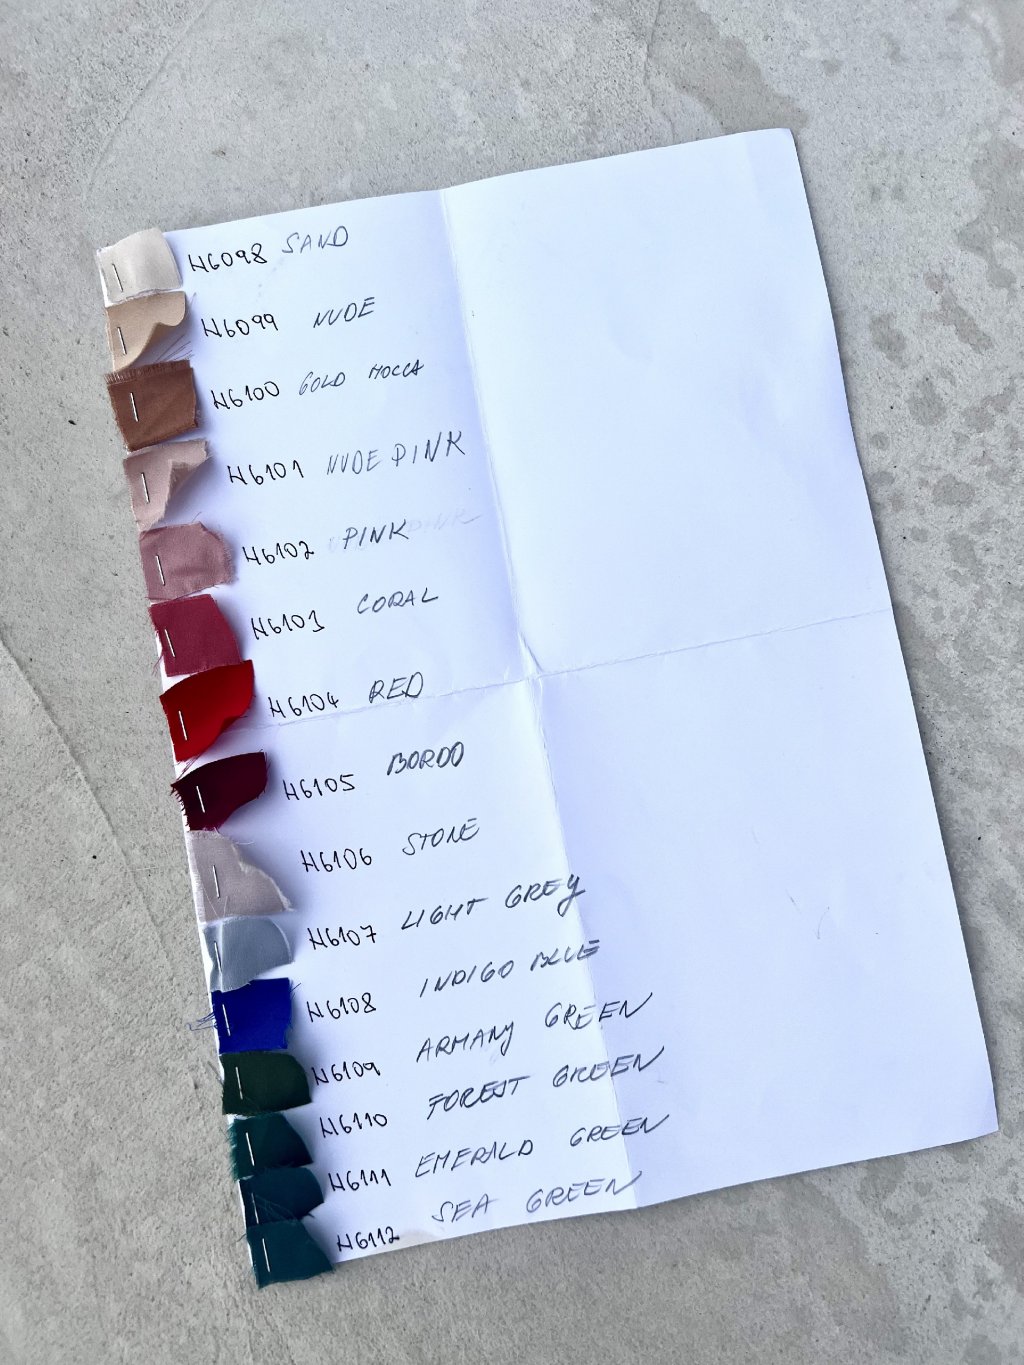 H6098 SAND
H6099 NUDE
H6100 GOLD MOCCA
H6101 NUDE PINK
H6102 PINK
H6103 CORAL
H6104 RED
H6105 BORDO
H6106 STONE
H6107 LIGHT GREY
H6108 INDIGO BLUE
H6109 ARMANY GREEN
H6110 FOREST GREEN
H6111 EMERALD GREEN
H6112 SEA GREEN